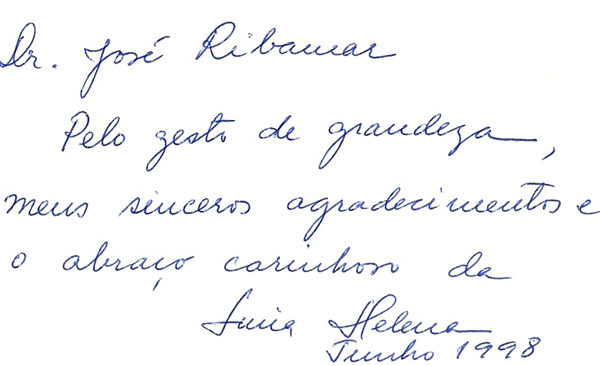 Dr. José Ribamar
Pelo gesto de grandeza,
meus sinceros agradecimentos e
o abraço carinhoso da
Lucia Helena
Junho 1998